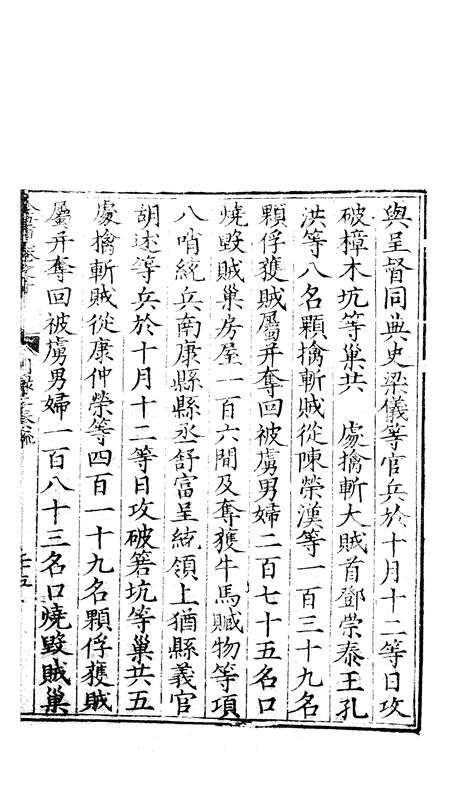 與呈督同典史梁儀等官兵於十月十二等日攻
破樟木坑等巢共　處擒斬大賊首鄧崇泰王孔
洪等八名顆擒斬賊從陳榮漢等一百三十九名
顆俘獲賊屬并奪回被虜男婦二百七十五名口
燒毀賊巢房屋一百六間及奪獲牛馬贓物等項
八哨統兵南康縣縣丞舒富呈統領上猶縣義官
胡述等兵於十月十二等日攻破箬坑等巢共五
處擒斬賊從康仲榮等四百一十九名顆俘獲賊
屬并奪回被虜男婦一百八十三名口燒毀賊巢